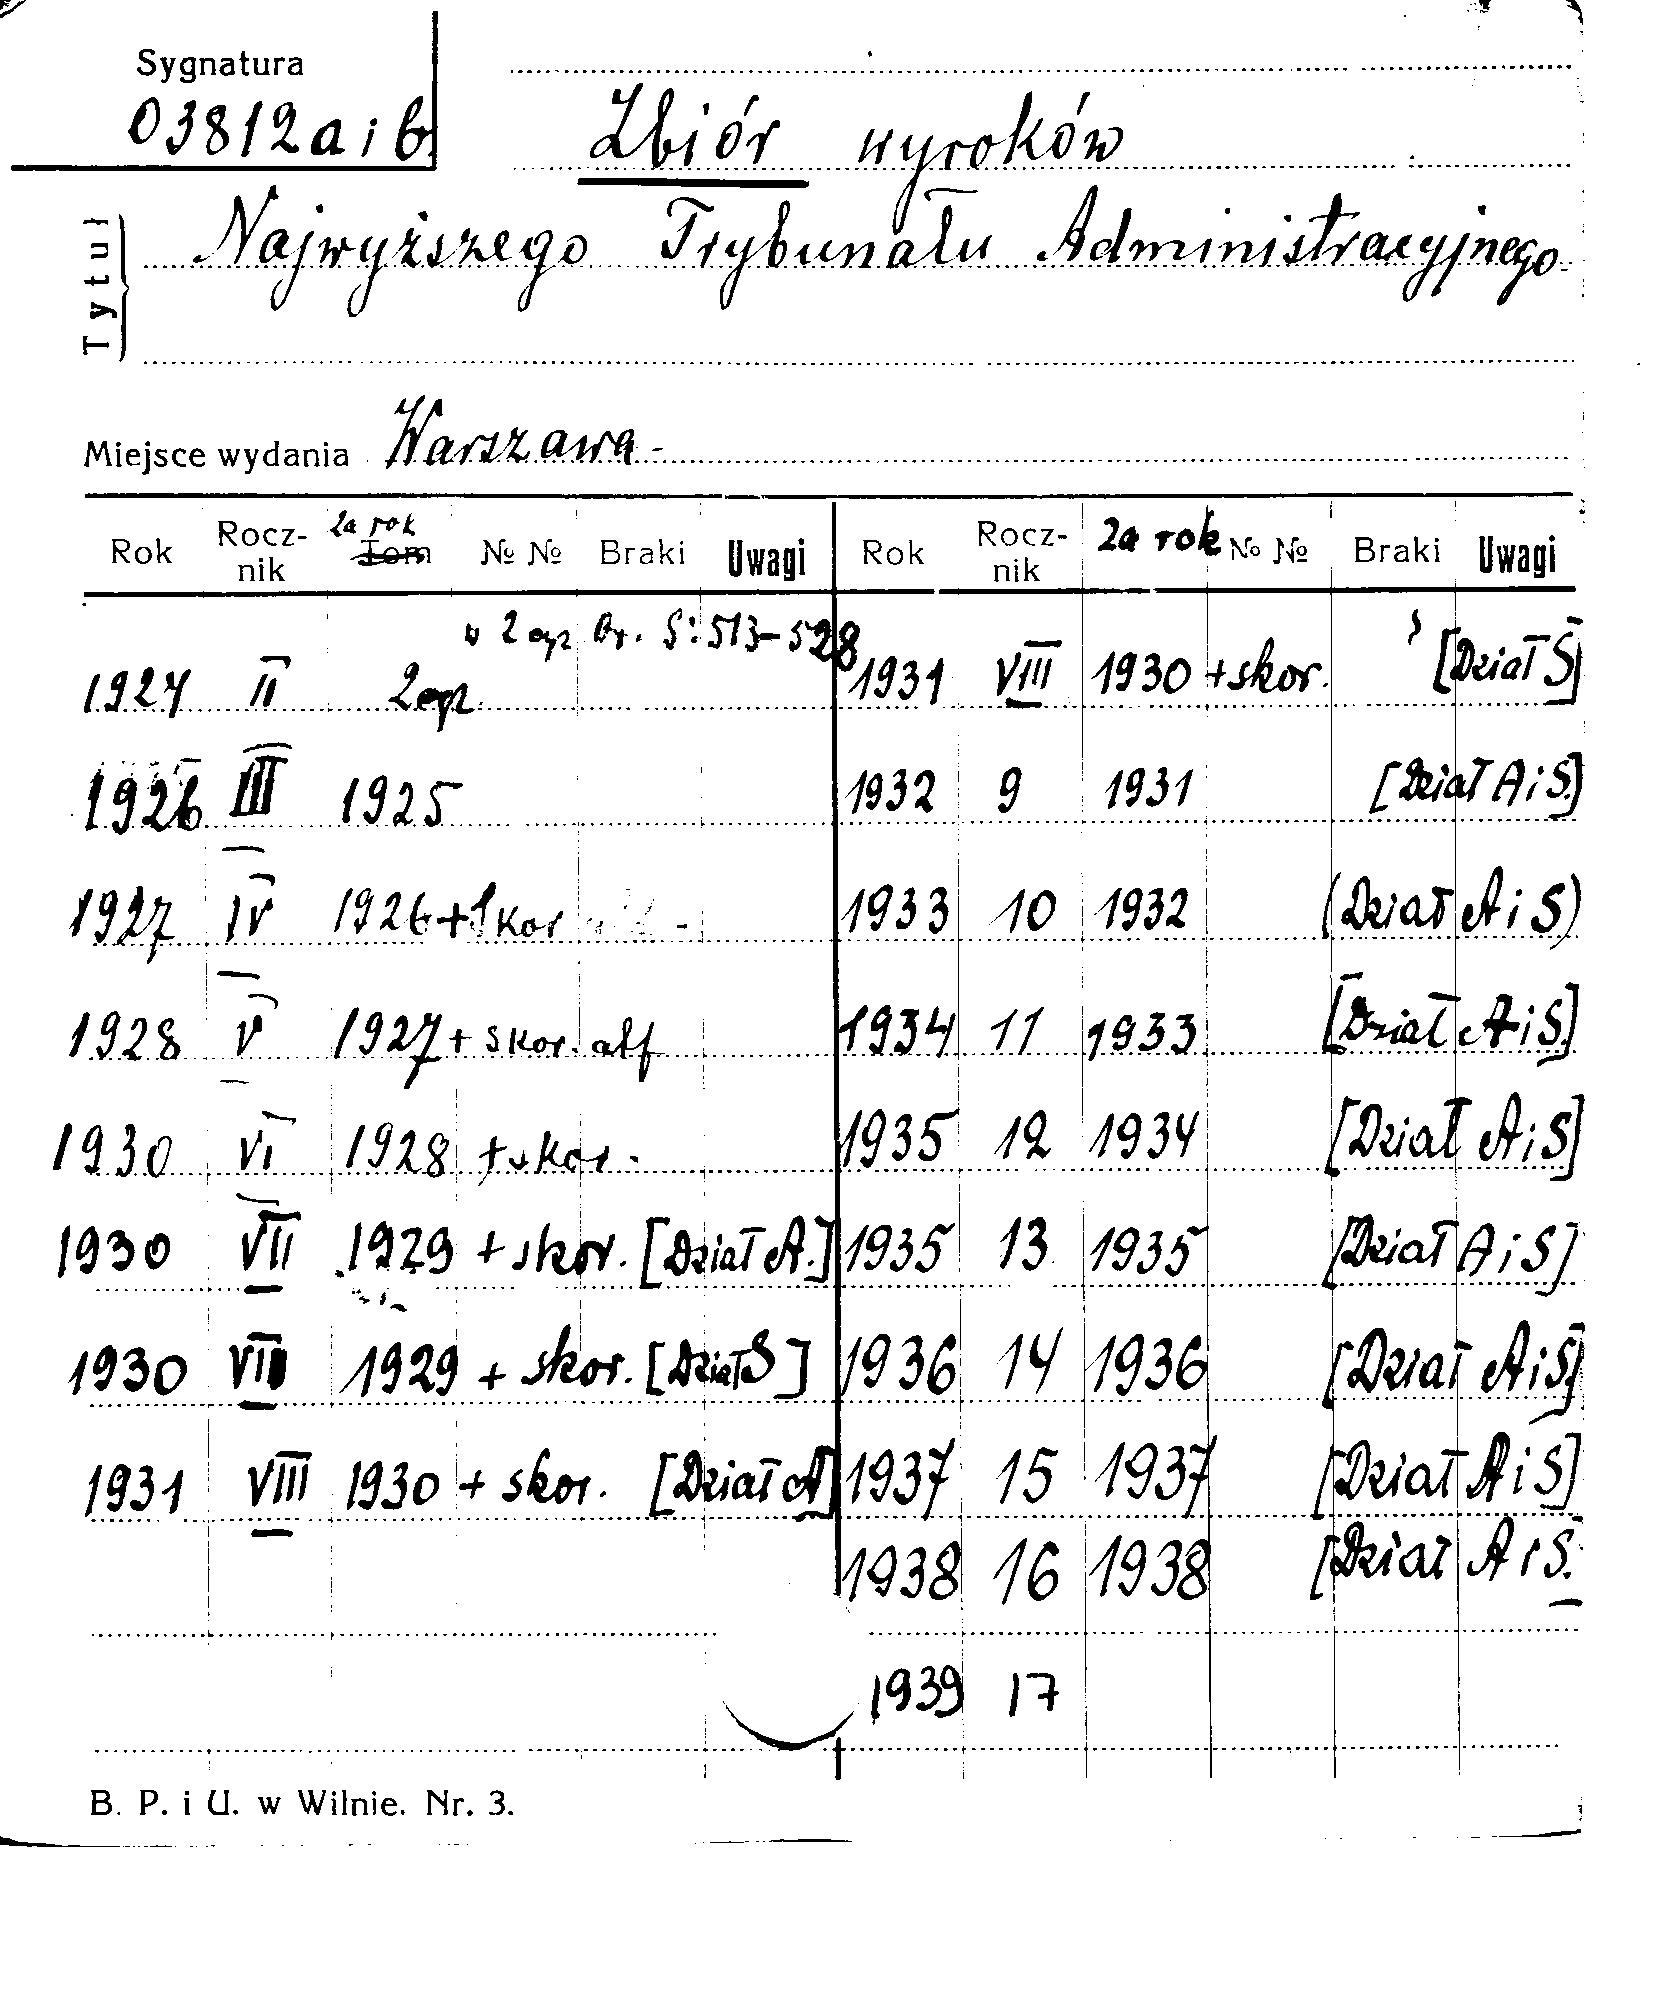 Sygnatura
03812 a i b.
Zbiór wyroków
Tytuł
Najwyższego Trybunału Administracyjnego
Miejsce wydania Warszawa -
Rok Rocz-nik Tom za rok № № Braki Uwagi Rok Rocz-nik za rok № № Braki Uwagi
w 2 egz Br. S: 513-528
1927 II 2 egz. 1931 VIII 1930 + skor. [Dział S]
1926 III 1925 1932 9 1931 [Dział A i S.]
1927 IV 1926 + skor 1933 10 1932 (Dział A i S)
1928 V 1927 + skor. alf 1934 11 1933 [Dział A i S.]
1930 VI 1928 + skor. 1935 12 1934 [Dział A i S]
1930 VII 1929 + skor. [Dział A.] 1935 13 1935 [Dział A i S]
1930 VII 1929 + skor. [Dział S] 1936 14 1936 [Dział A i S]
1931 VIII 1930 + skor. [Dział A] 1937 15 1937 [Dział A i S]
1938 16 1938 [Dział A i S.
1939 17
B. P. i U. w Wilnie. Nr. 3.